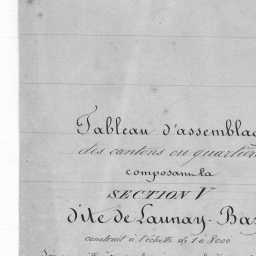 Tableau d'assembla
des cantons ou quartie
composant la
SECTION V
dite de Launay-Ba
construit à l'échelle de 1 à 8000